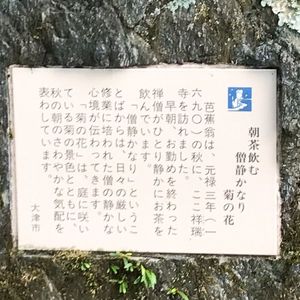 朝茶飲む
僧静かなり
菊の花
芭蕉翁は、元禄三年(一
六九〇)の秋に、ここ祥瑞
寺を訪れました。
早朝、お勤めを終わった
禅僧がひとり静かにお茶を
飲んでいます。
「僧静かなり」というこ
とばからは、日々の厳しい
修業に培われた僧の静かな
心境が伝わってきます。
「菊の花」は、庭に咲い
ている菊の景色とともに、
秋の朝のさわやかな気配を
表わしています。
大津市